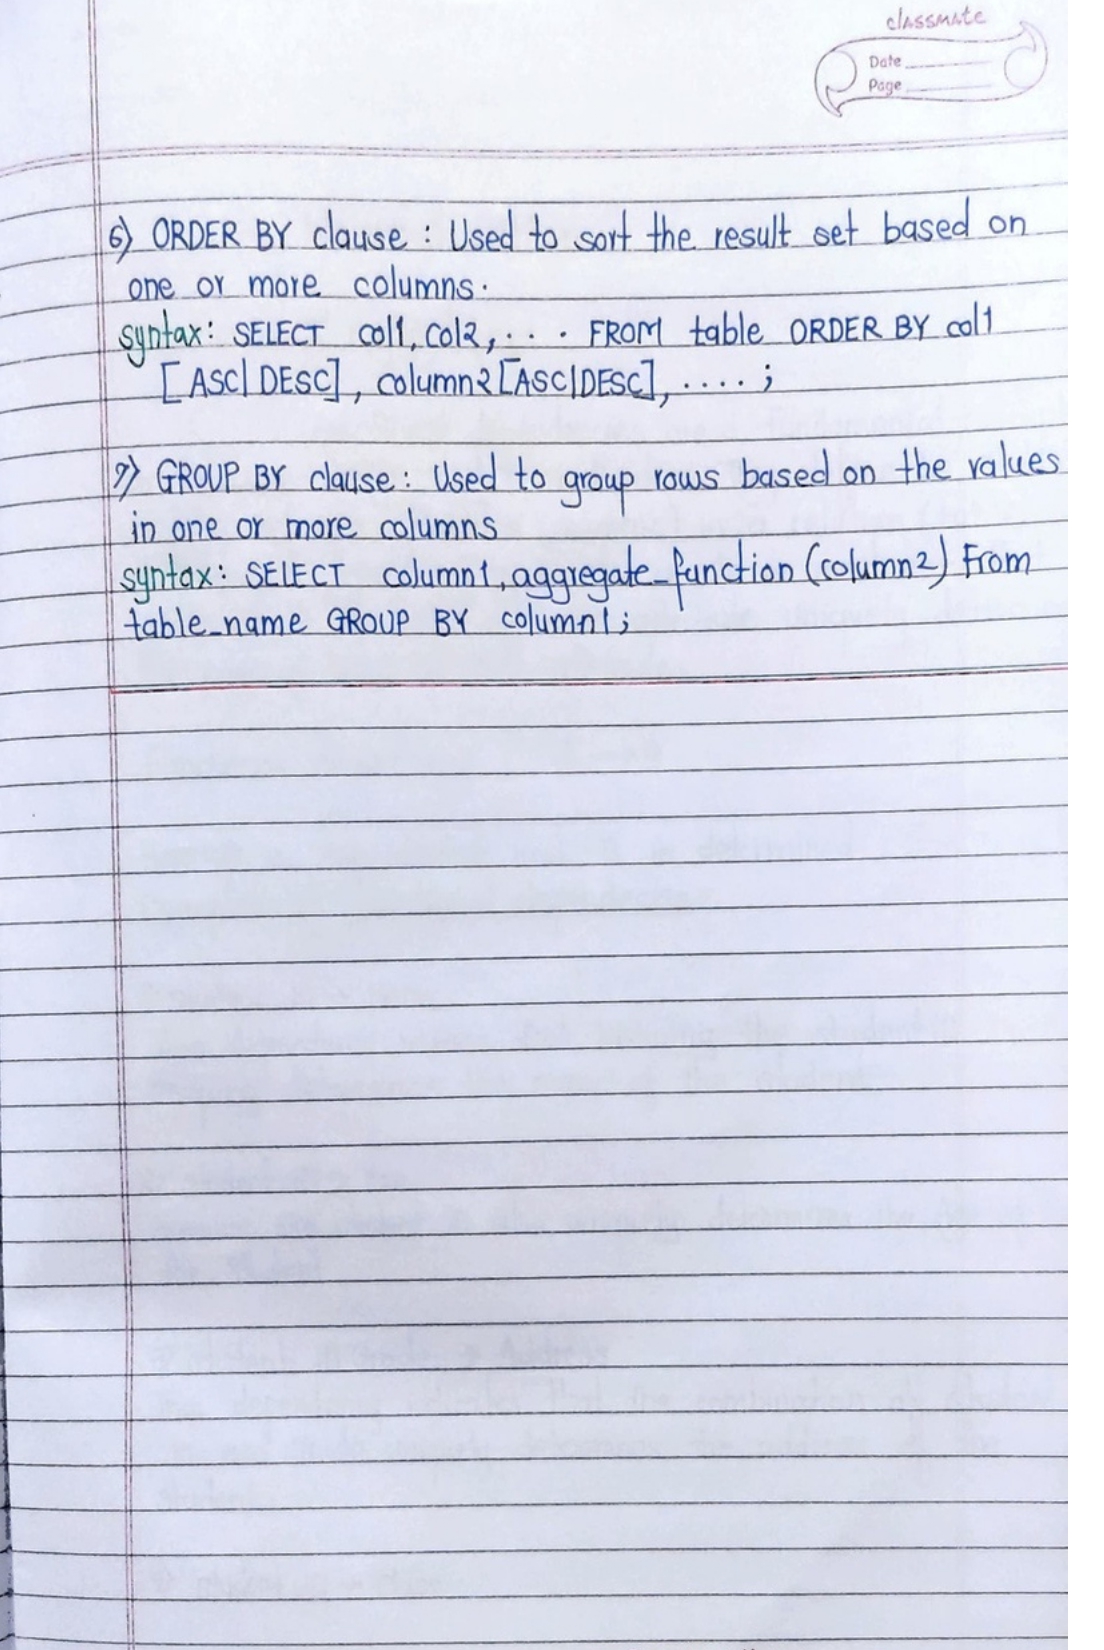 classmate
Date
Page
6) ORDER BY clause : Used to sort the result set based on
one or more columns.
syntax: SELECT col1, col2, . . . FROM table ORDER BY col1
[ASC|DESC], column2 [ASC|DESC], .... ;
7) GROUP BY clause : Used to group rows based on the values
in one or more columns
syntax: SELECT column1, aggregate_function (column2) From
table_name GROUP BY column1;